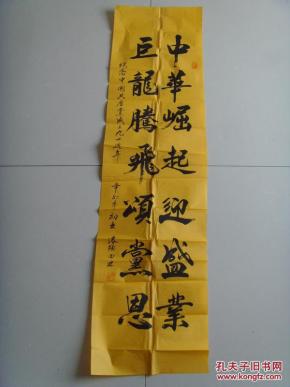 中華崛起迎盛業
巨龍騰飛頌黨恩
纪念中國共產黨成立九十週年
辛卯年初夏
孔夫子旧书网